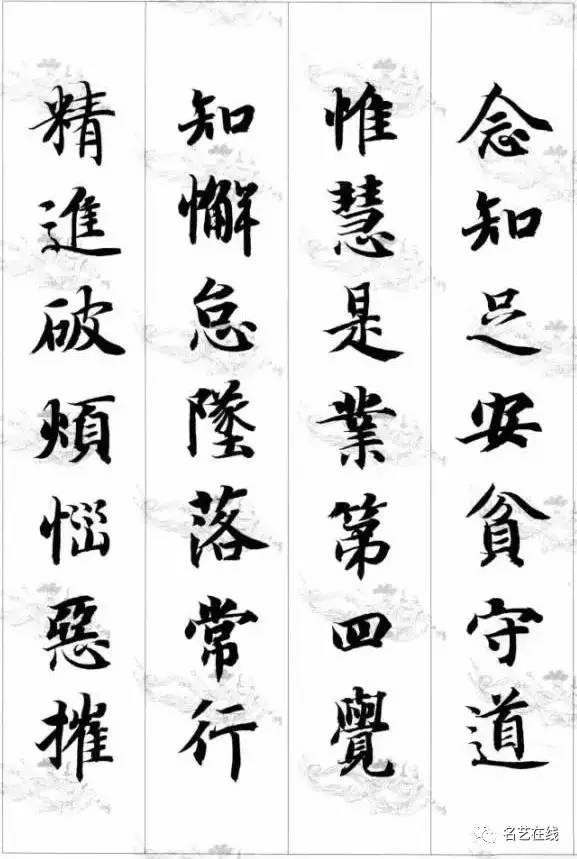 念知足安貧守道
惟慧是業第四覺
知懈怠墜落常行
精進破煩惱惡摧
名艺在线